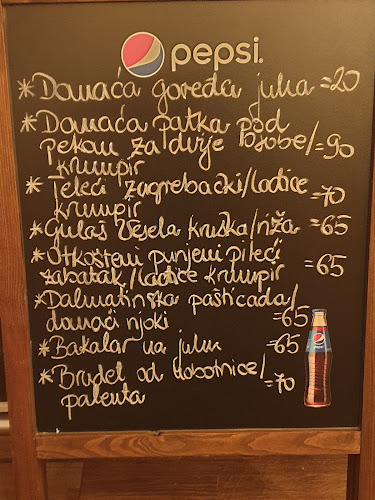 pepsi.
* Domaća goveđa juha =20
* Domaća patka pod
pekom za dvije osobe/=90
krumpir
* Teleći zagrebački/ladice
krumpir =70
* Gulaš Vesela kruška/riža =65
* Otkošteni punjeni pileći
zabatak/ladice krumpir =65
* Dalmatinska pašticada/
domaći njoki =65
* Bakalar na juhu =65
* Brudet od hobotnice/
palenta =70
pepsi